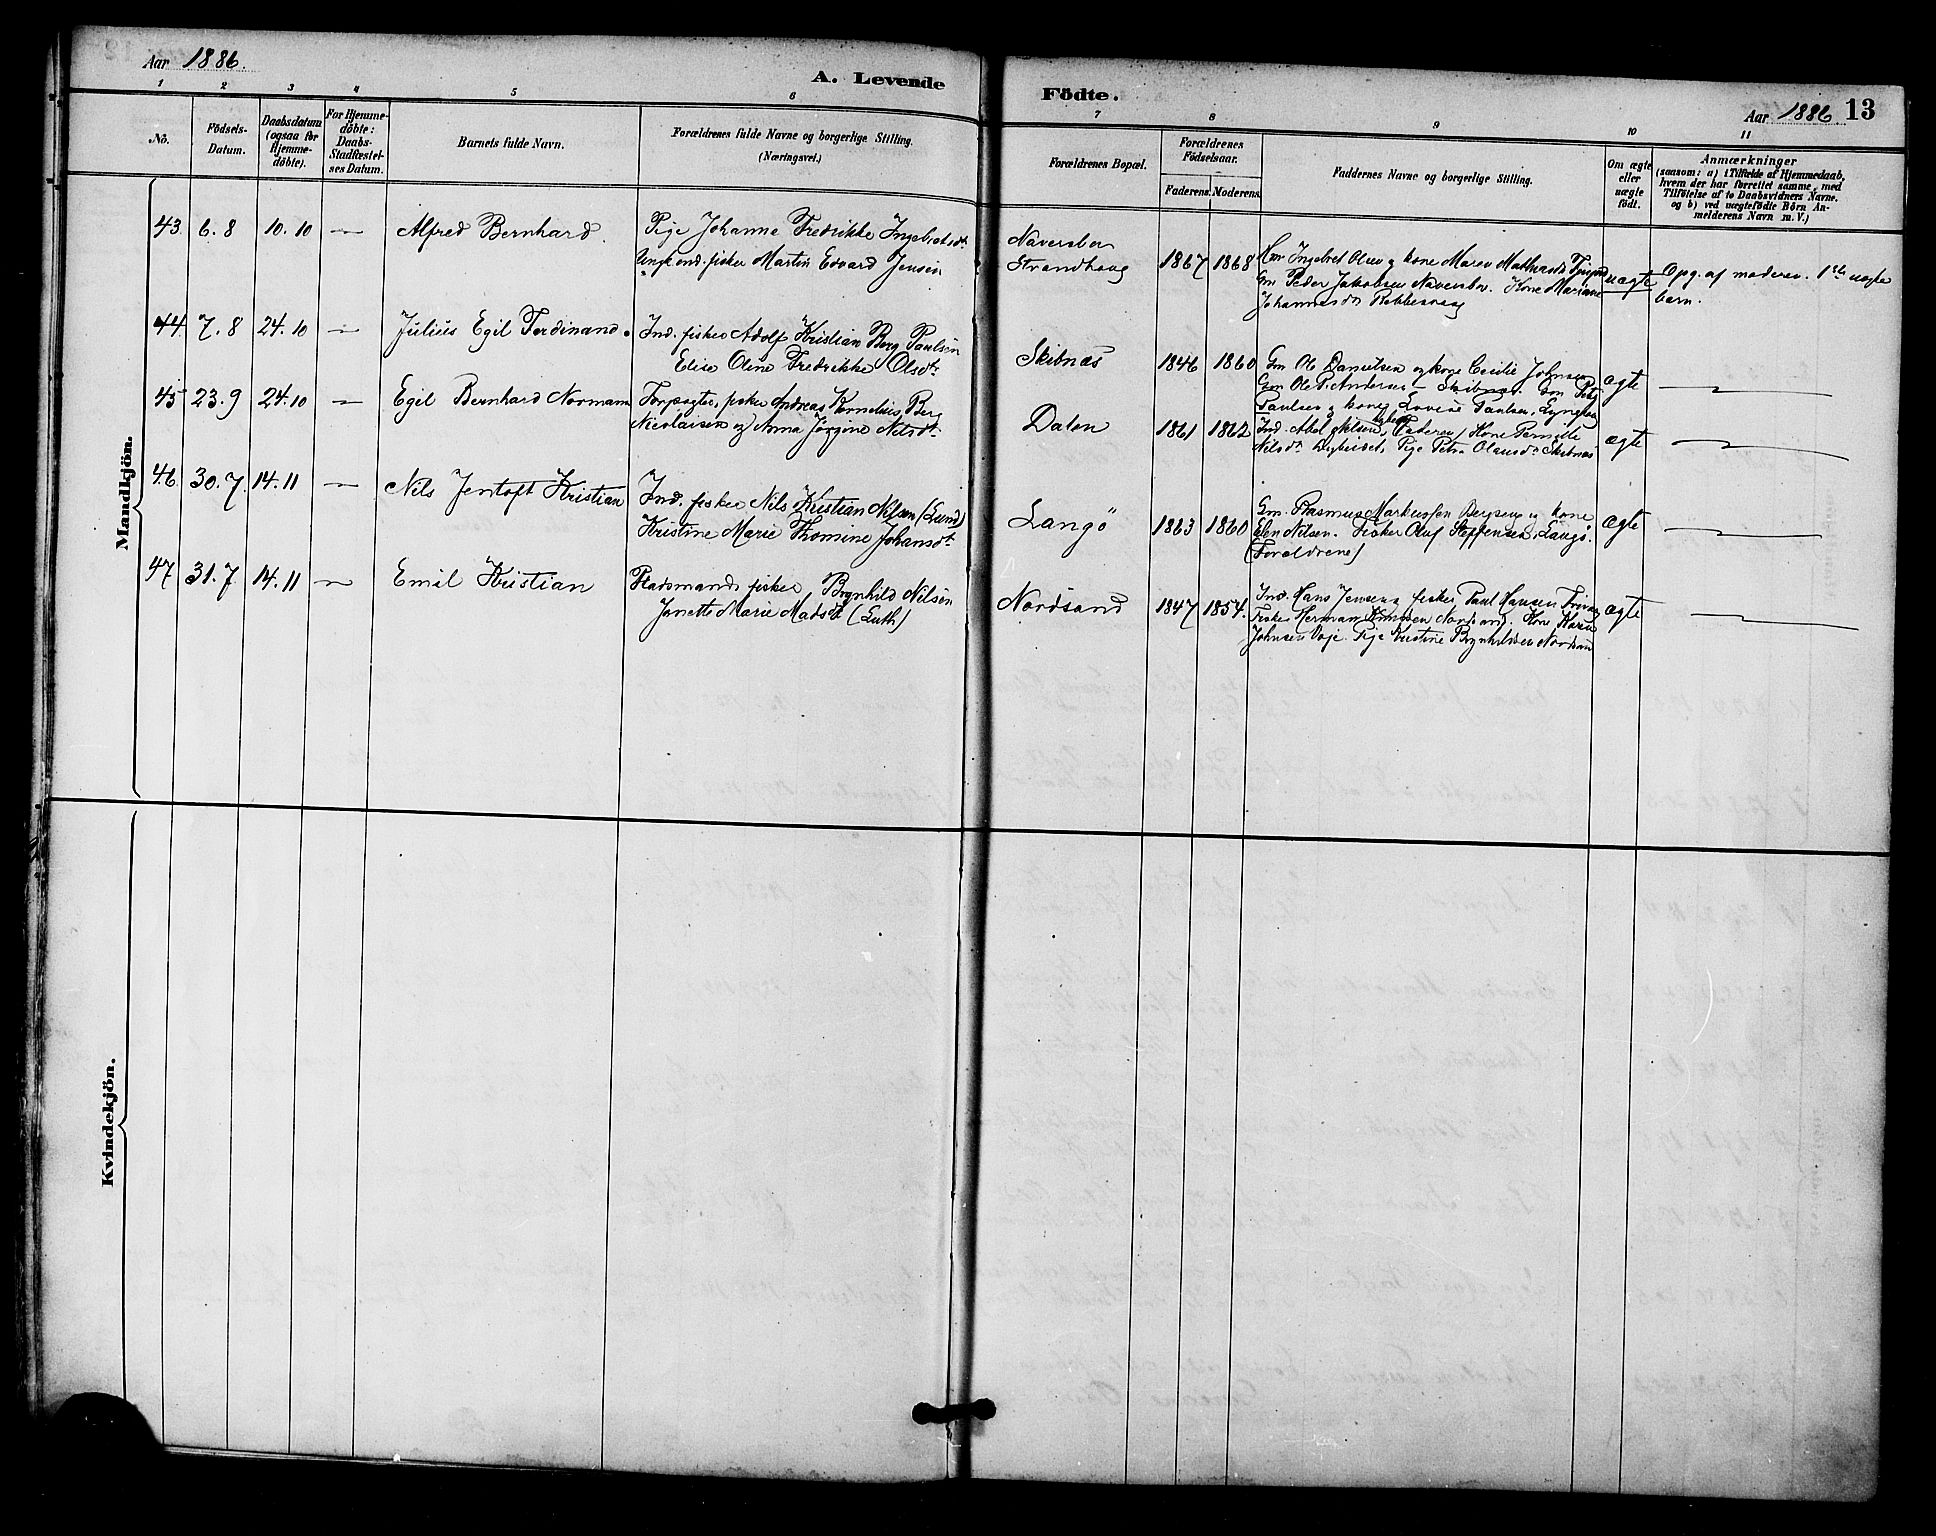 Aar 1886.
A. Levende Födte.
Aar 1886 13
1 2 3 4 5 6 7 8 9 10 11
No.
Födsels-
Datum.
Daabsdatum
(ogsaa for
Hjemme-
döbte).
For Hjemme-
döbte:
Daabs-
Stadfæstel-
ses Datum.
Barnets fulde Navn.
Forældrenes fulde Navne og borgerlige Stilling.
(Næringsvei.)
Forældrenes Bopæl.
Forældrenes
Födselsaar.
Faderens. Moderens.
Faddernes Navne og borgerlige Stilling.
Om ægte
eller
uægte
födt.
Anmærkninger
(saasom: a) i Tilfælde af Hjemmedaab,
hvem der har forrettet samme, med
Tilföielse af to Daabsvidners Navne.
og b) ved uægtefödte Börn An-
melderens Navn m. V.)
Mandkjön.
43. 6.8 10.10 — Alfred Bernhard. Pige Johanne Fredrikke Ingebretsdt
Ungk. ind. fisker Martin Edvard Jensen
Naversbor
Strandhaug 1867 1868 Gm Ingebret Olsen og kone Maren
Gm Peder Jakobsen Naversbor. Kone Mariane
Johannesdt
uægte Opg. af moderen. 1ste uægte
barn.
44. 7.8 24.10 — Julius Egil Ferdinand. Ind. fisker Adolf Kristian Berg Paulsen
Elise Oline Fredrikke Olsdt.
Skibnæs 1846 1860 Gm Ole Danielsen og kone Cecilie Johnsen
Gm Ole P. Andersen – Skibnæs. Gm
Paulsen og kone Lovise Paulsen,
ægte —
45 23.9 24.10 — Egil Bernhard Normann Forpagter, fisker Andreas Kornelius Berg
Nicolaisen og Anna Jörgine Nilsdt.
Dalen 1861 1862 Ind. Abel Nilsen, Faderen, Kone Pernille
Nilsdt Pige Petra Olausdt Skibnæs
ægte —
46. 30.7. 14.11 — Nils Jentoft Kristian Ind. fisker Nils Kristian Nilsen (Lund)
Kristine Marie Thomine Johansdt.
Langö 1863 1860 Gm. Rasmus Markussen Bergsen og kone
Elen Nilsen. Fisker Oluf Steffensen, Langö.
(Forældrene)
ægte —
47 31.7 14.11 — Emil Kristian Pladsmand, fisker, Brynhild Nilsen
Janette Marie Madsdt (Luth)
Nordsand 1847 1854. Ind. Hans Jensen, fisker Paul Hansen
Fisker Herman Knudsen Norsand. Kone Karen
Johnsen Pige Kristine Brynhildsen Norsand
ægte —
Kvindekjön.